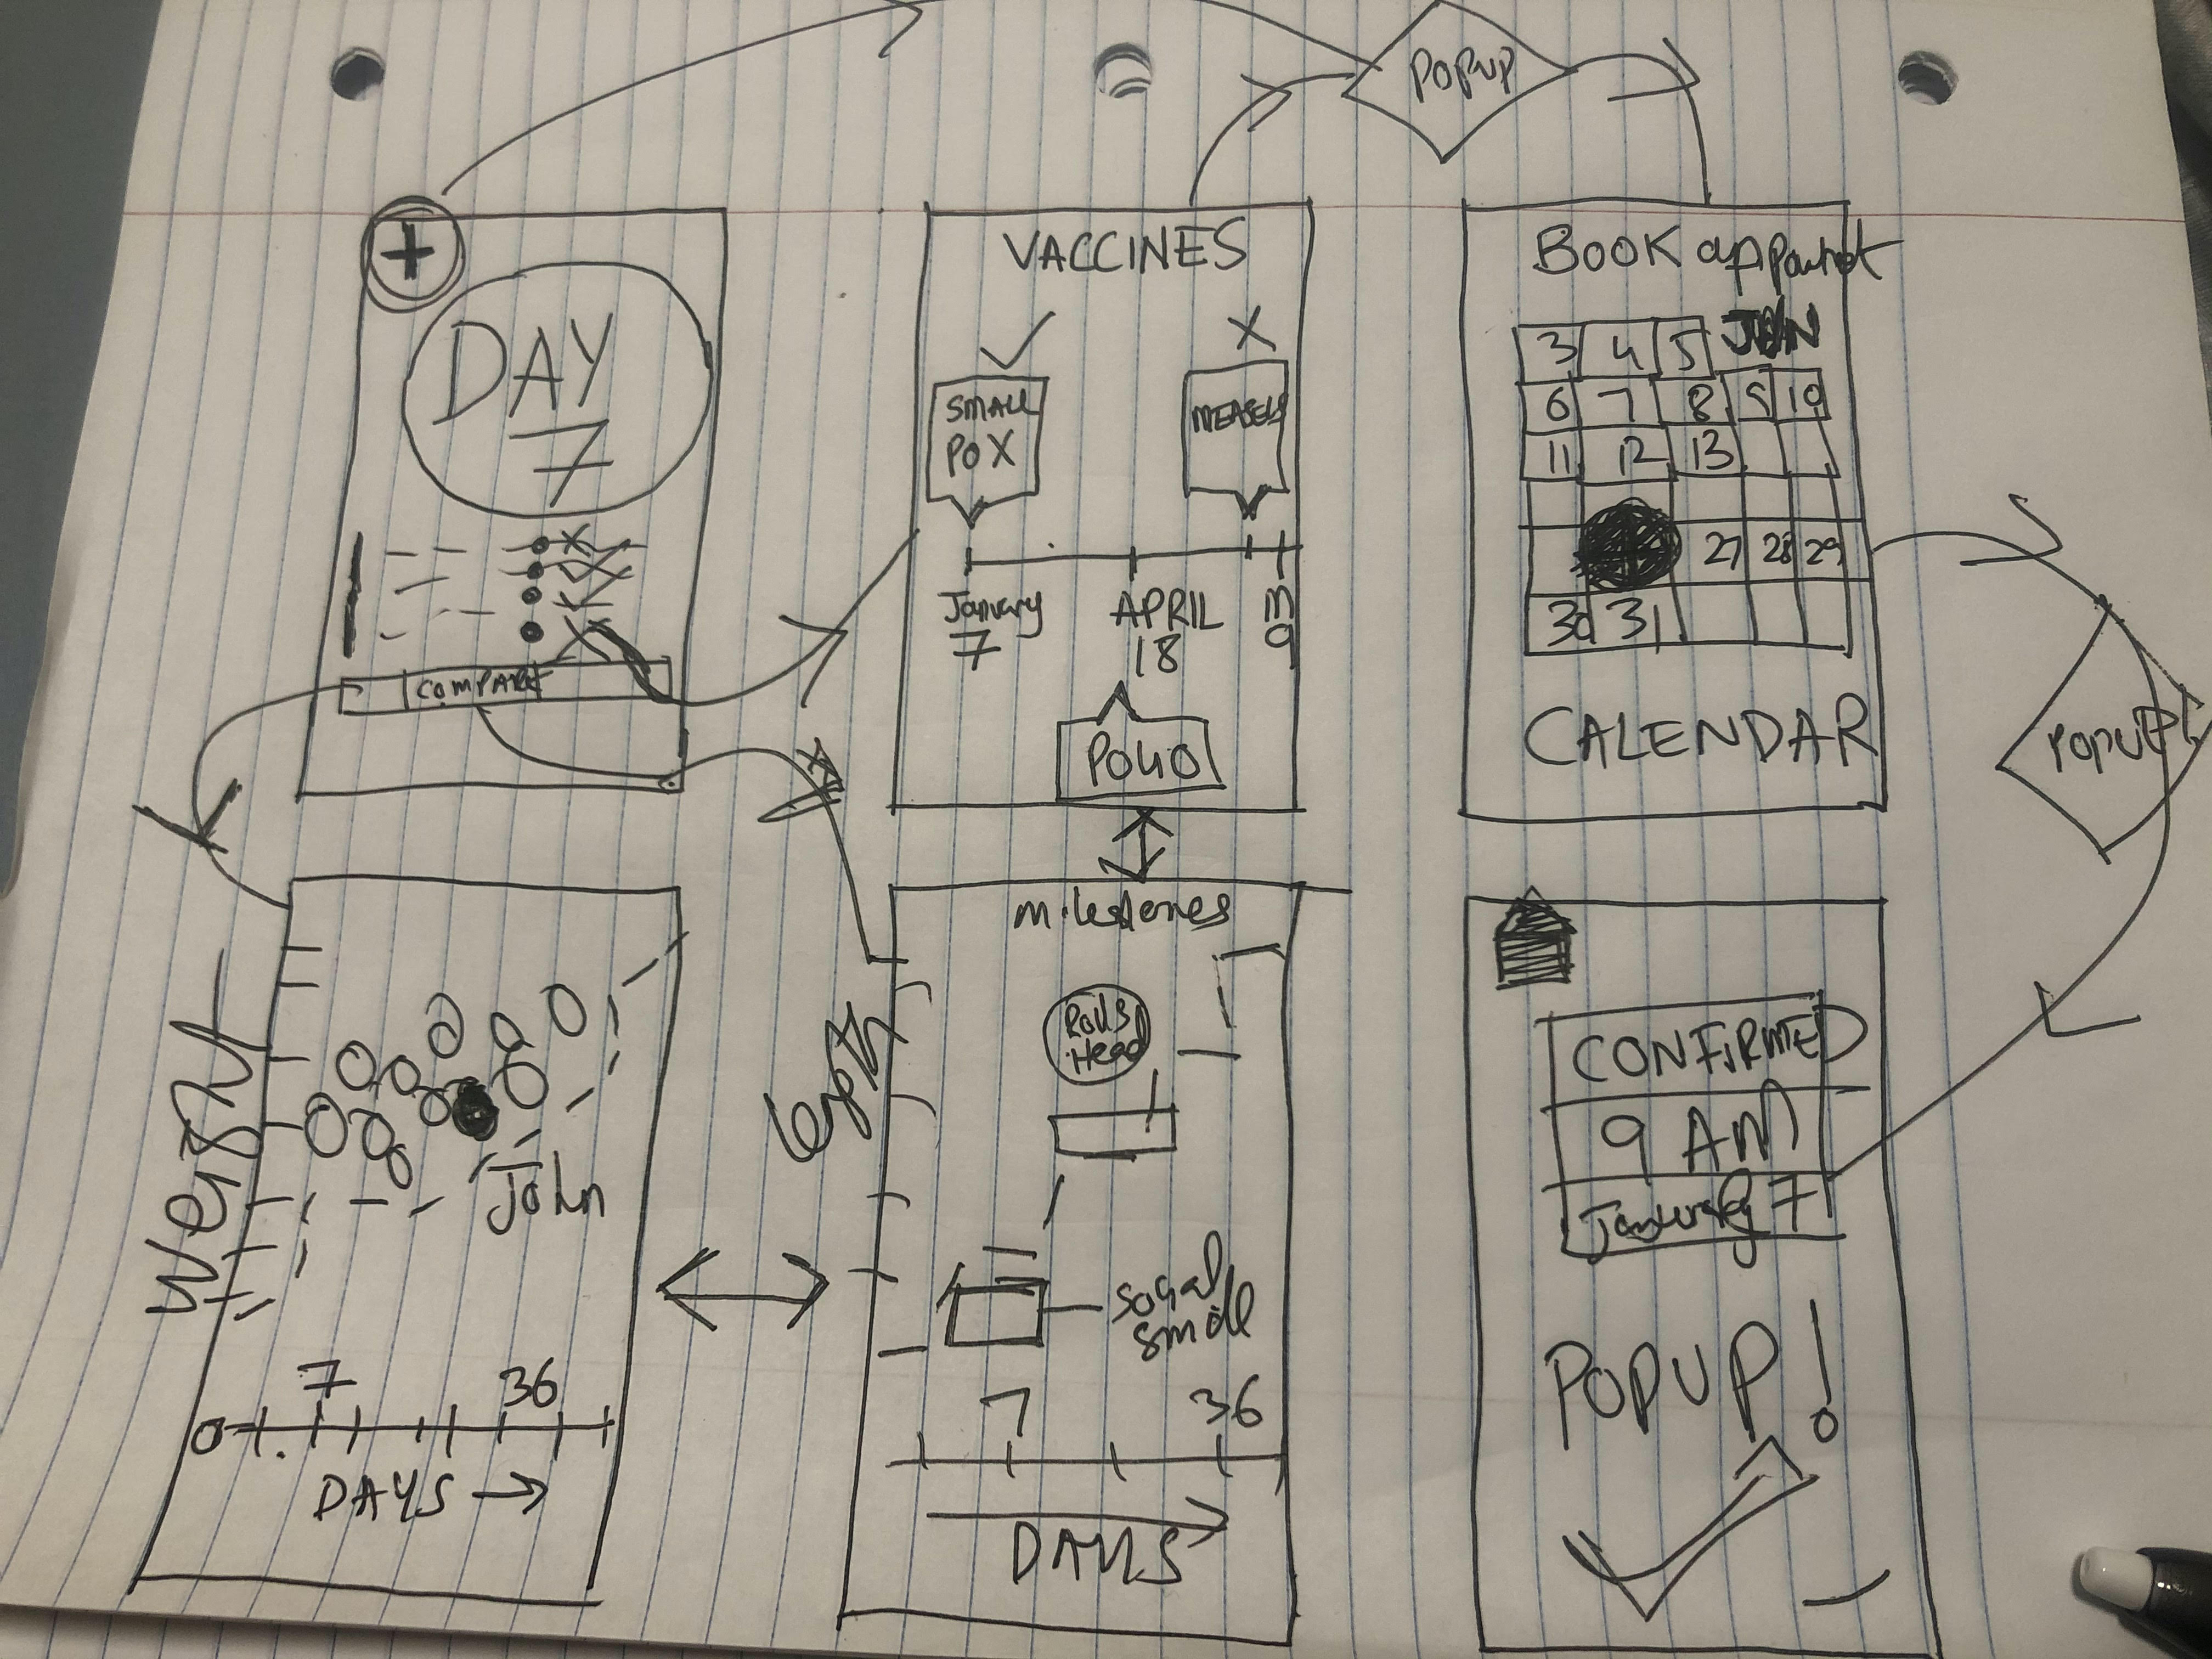 POPUP
+
DAY
7
COMPARE
VACCINES
SMALL
POX
MEASELS
January
7
APRIL
18
m
9
POLIO
BOOK
JOHN
3 4 5
6 7 8 9 10
11 12 13
27 28 29
30 31
CALENDAR
POPUP
Weight
John
7 36
0
DAYS
milestones
Rolls
Head
social
smile
7 36
DAYS
CONFIRMED
9 AM
January 7
POPUP!